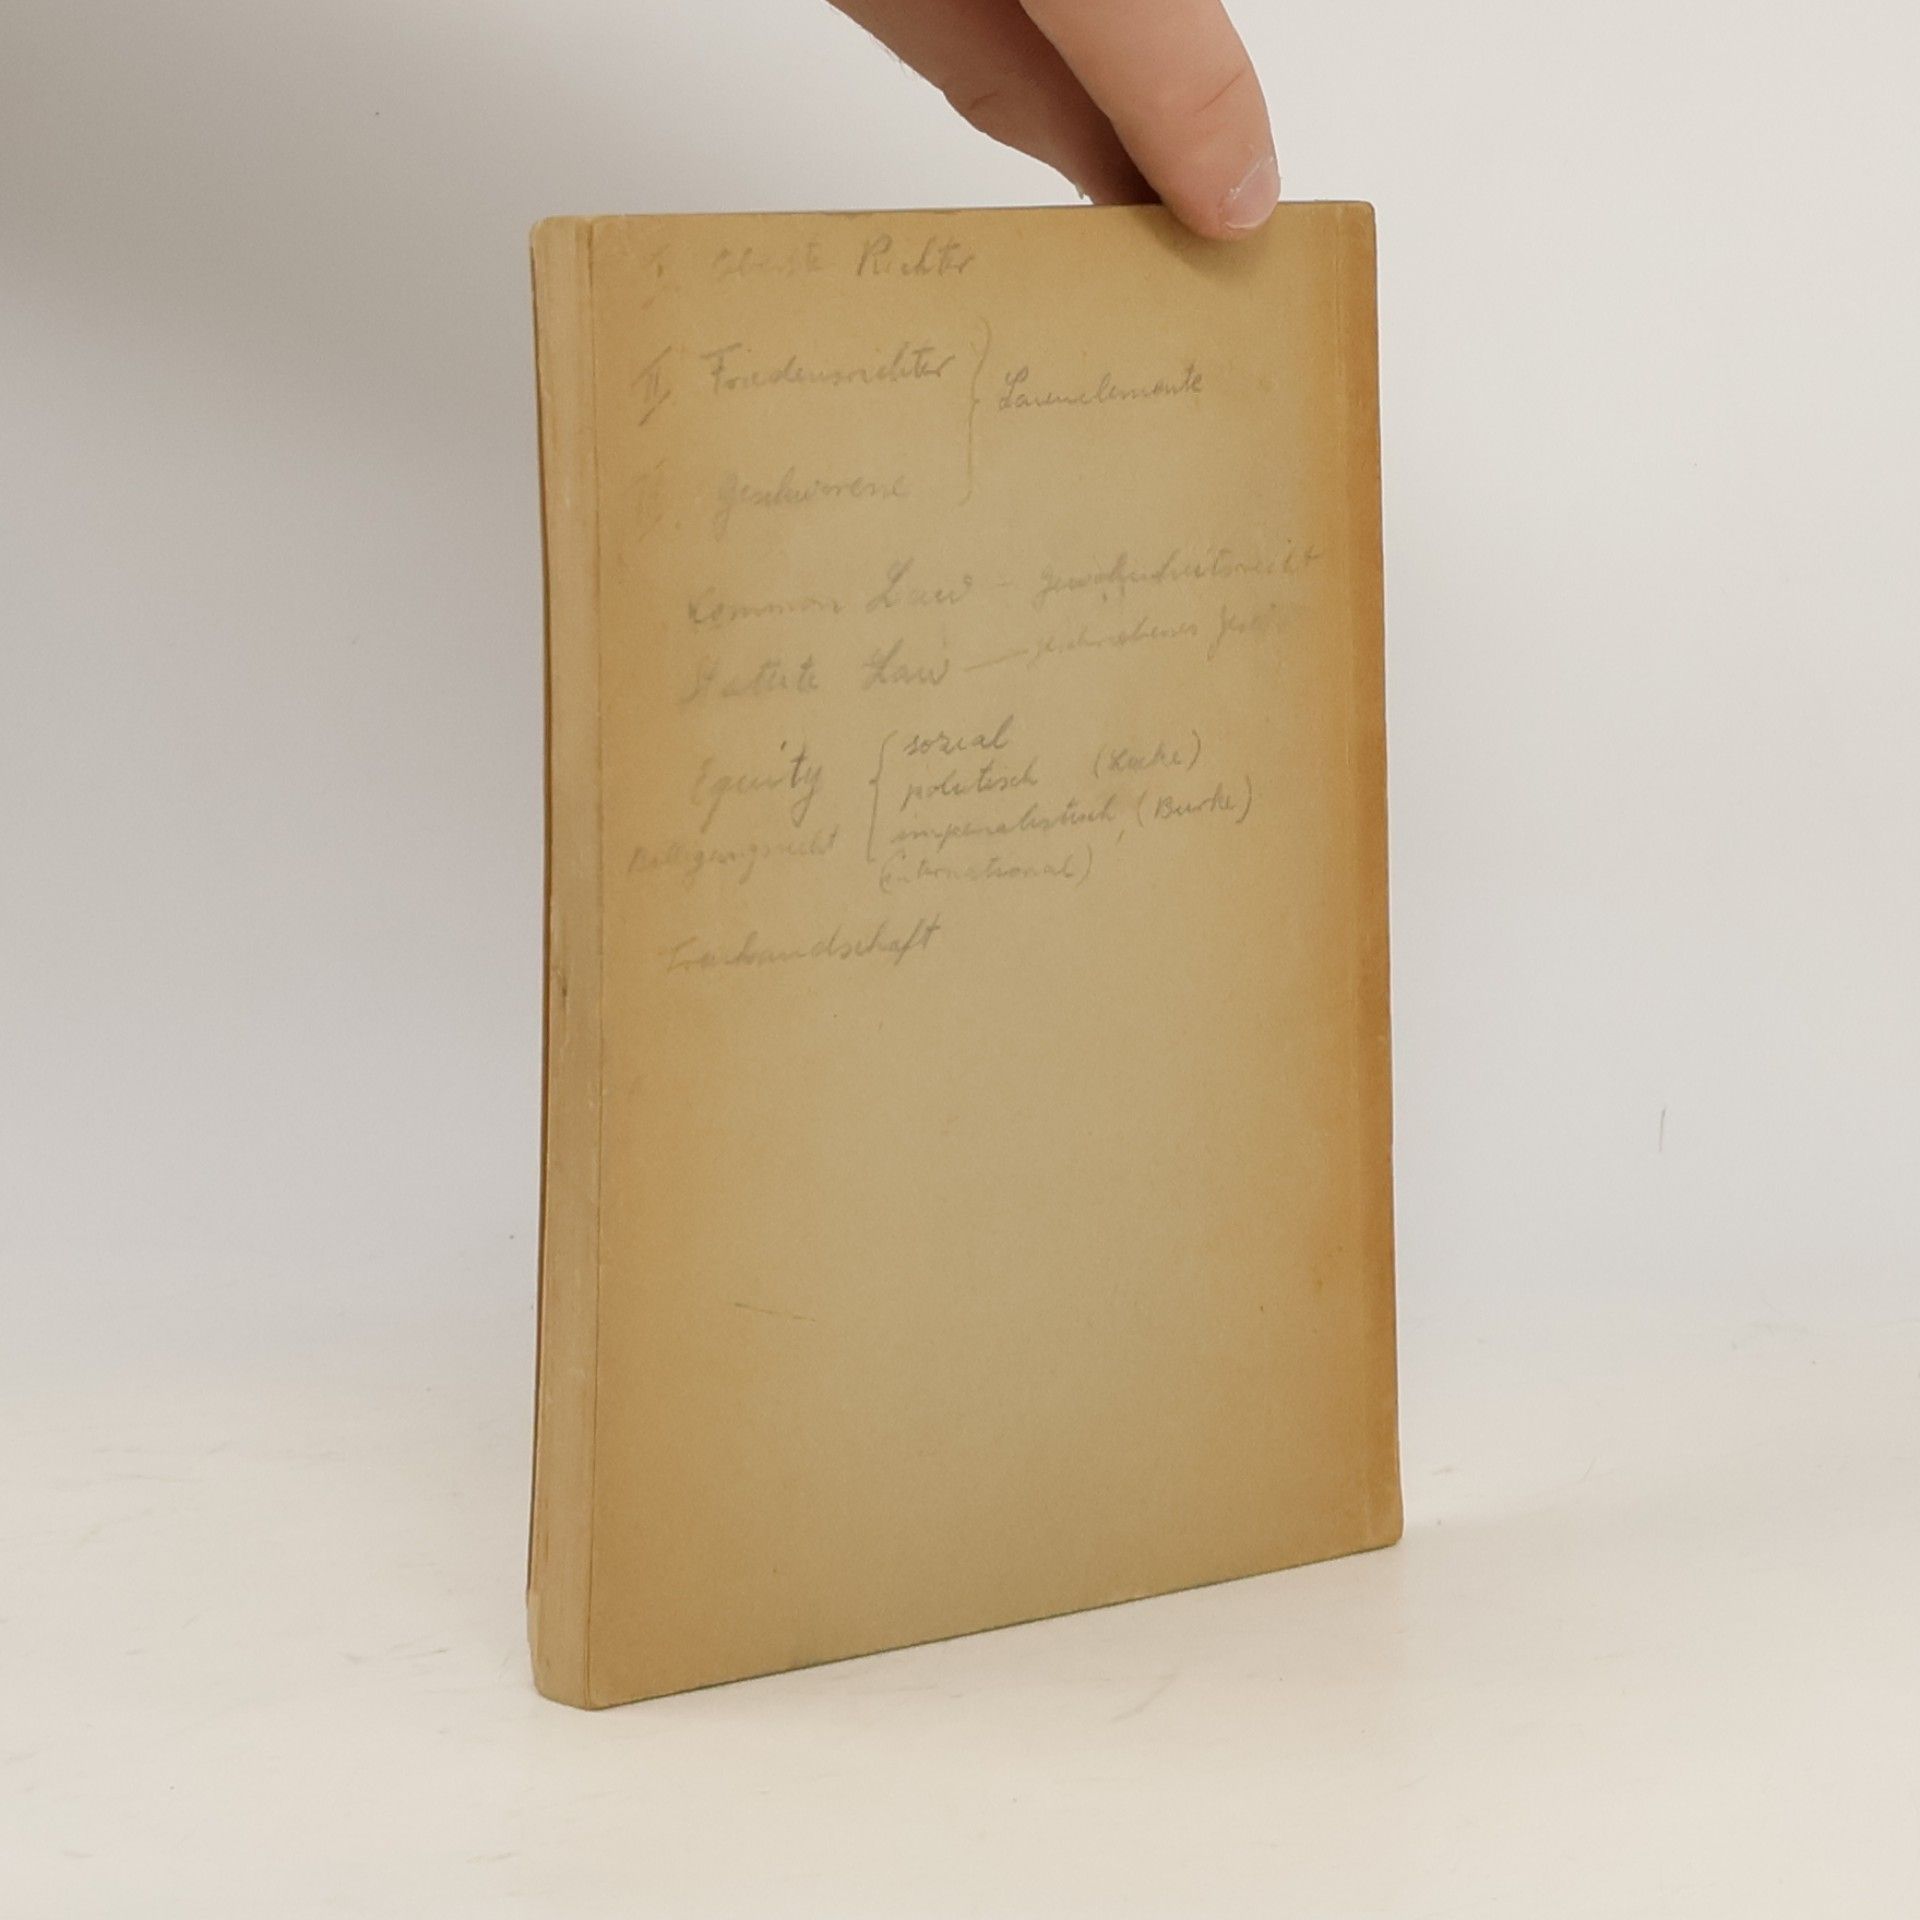 I. Oberste Richter
II. Friedensrichter } Laienelemente
III. Geschworene
Common Law - Gewohnheitsrecht
Statute Law — geschriebenes
Equity { sozial
politisch (Locke)
imperialistisch, (Burke)
Billigungsrecht
(international)
Treuhandschaft